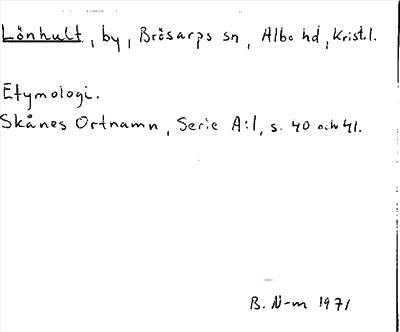 Lönhult, by, Brösarps sn, Albo hd, Krist.l.
Etymologi.
Skånes Ortnamn, Serie A:1, s. 40 och 41.
B. N-m 1971